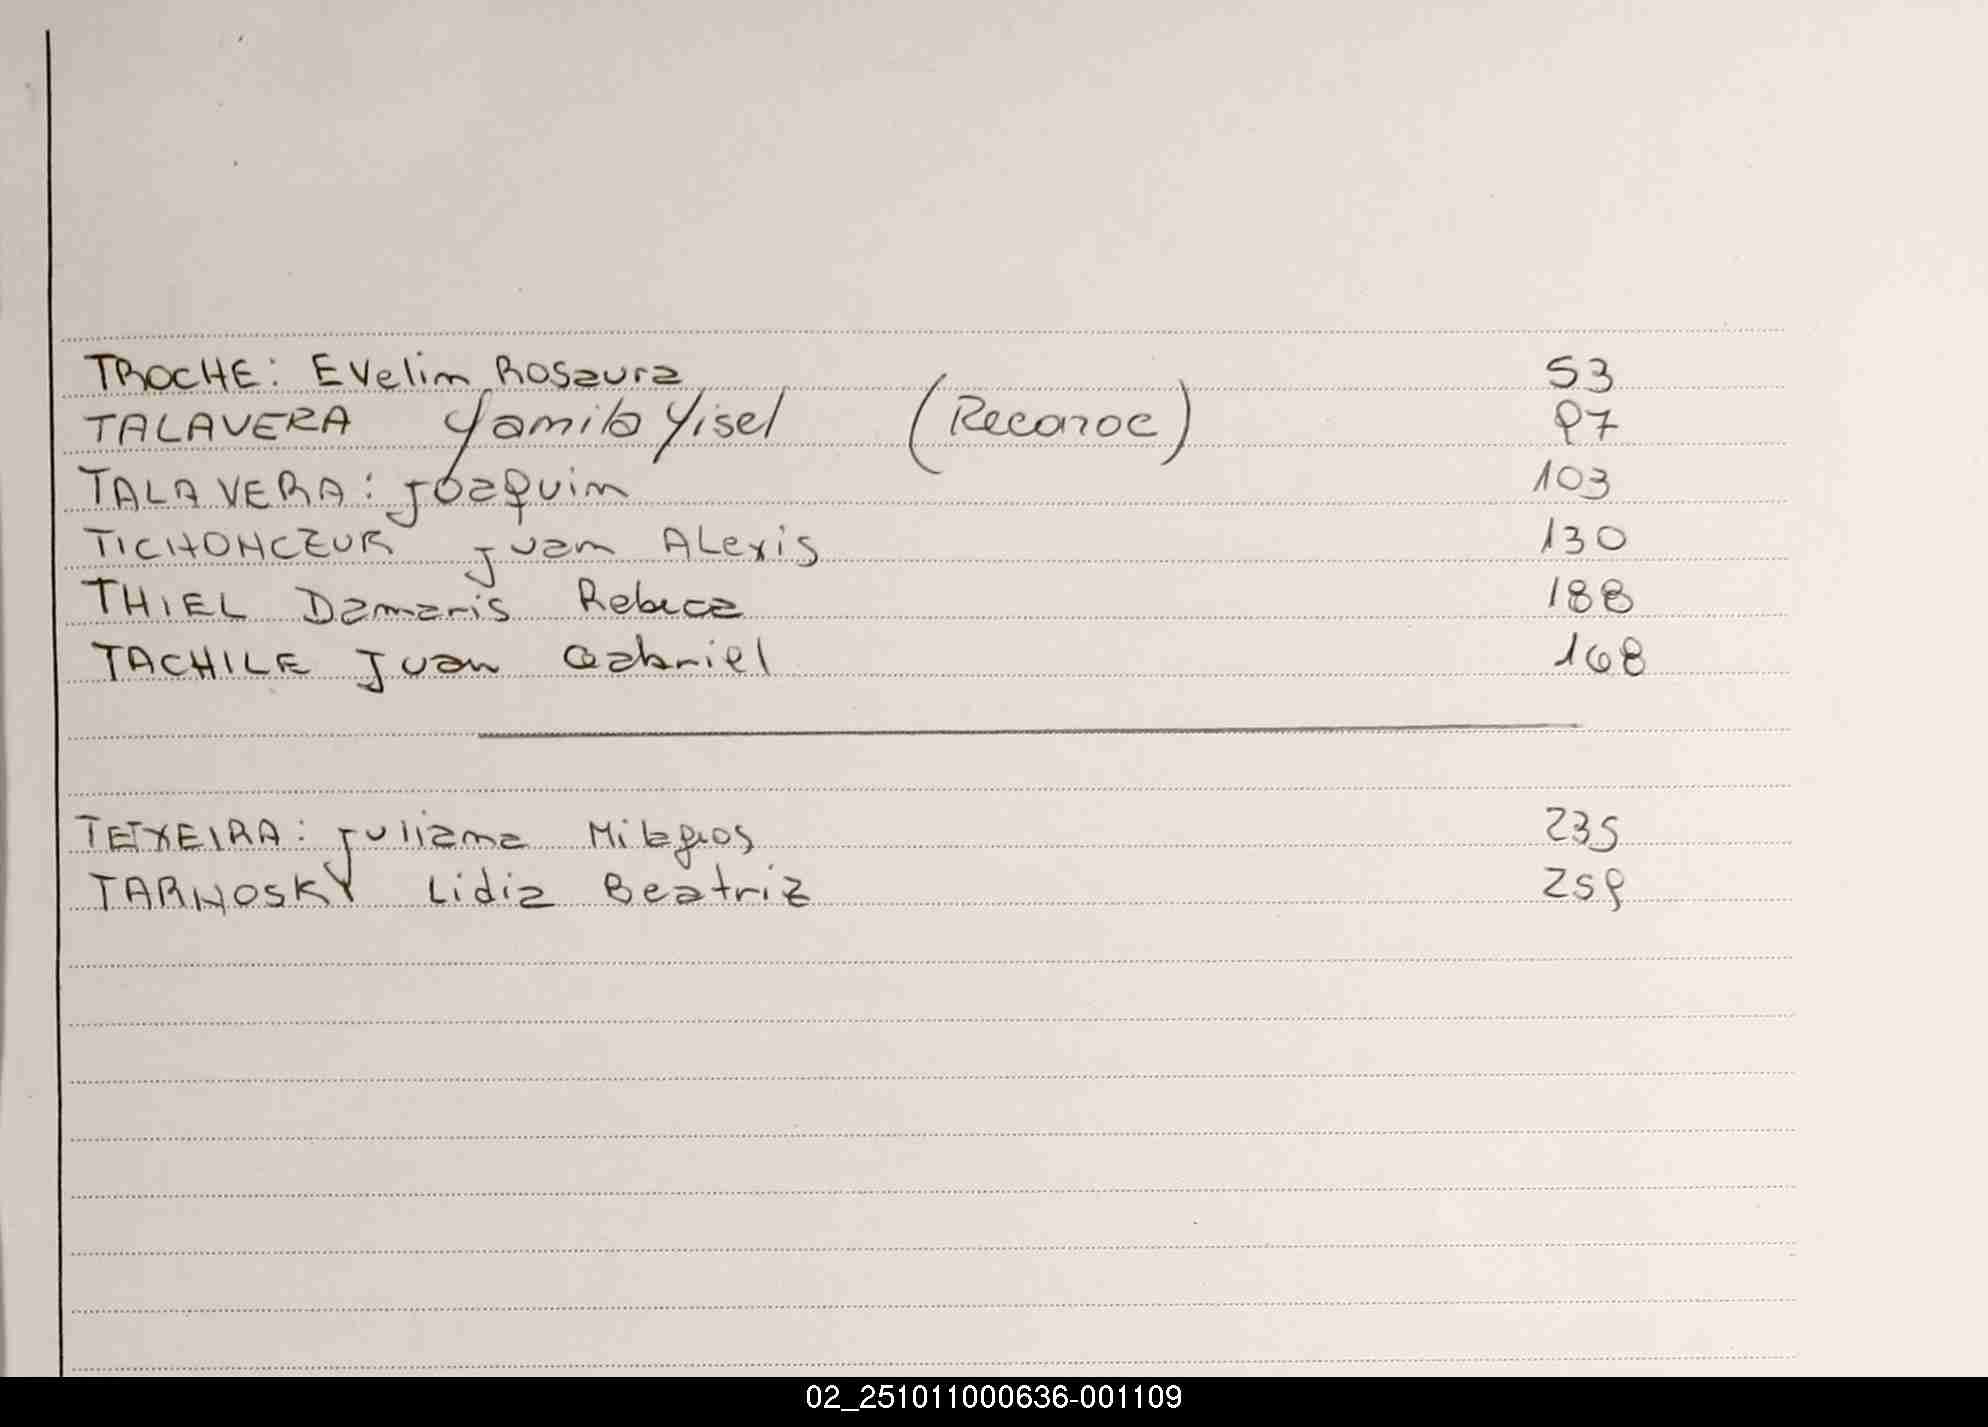 TROCHE: Evelim Rosaura 53
TALAVERA Yamila Yisel (Reconoc) 97
TALAVERA: Joaquim 103
TICHONCZUK Juan ALexis 130
THIEL Damaris Rebeca 188
TACHILE Juan Gabriel 168
TEIXEIRA: Juliana Milagros 235
TARNOSKY Lidia Beatriz 259
02_251011000636-001109